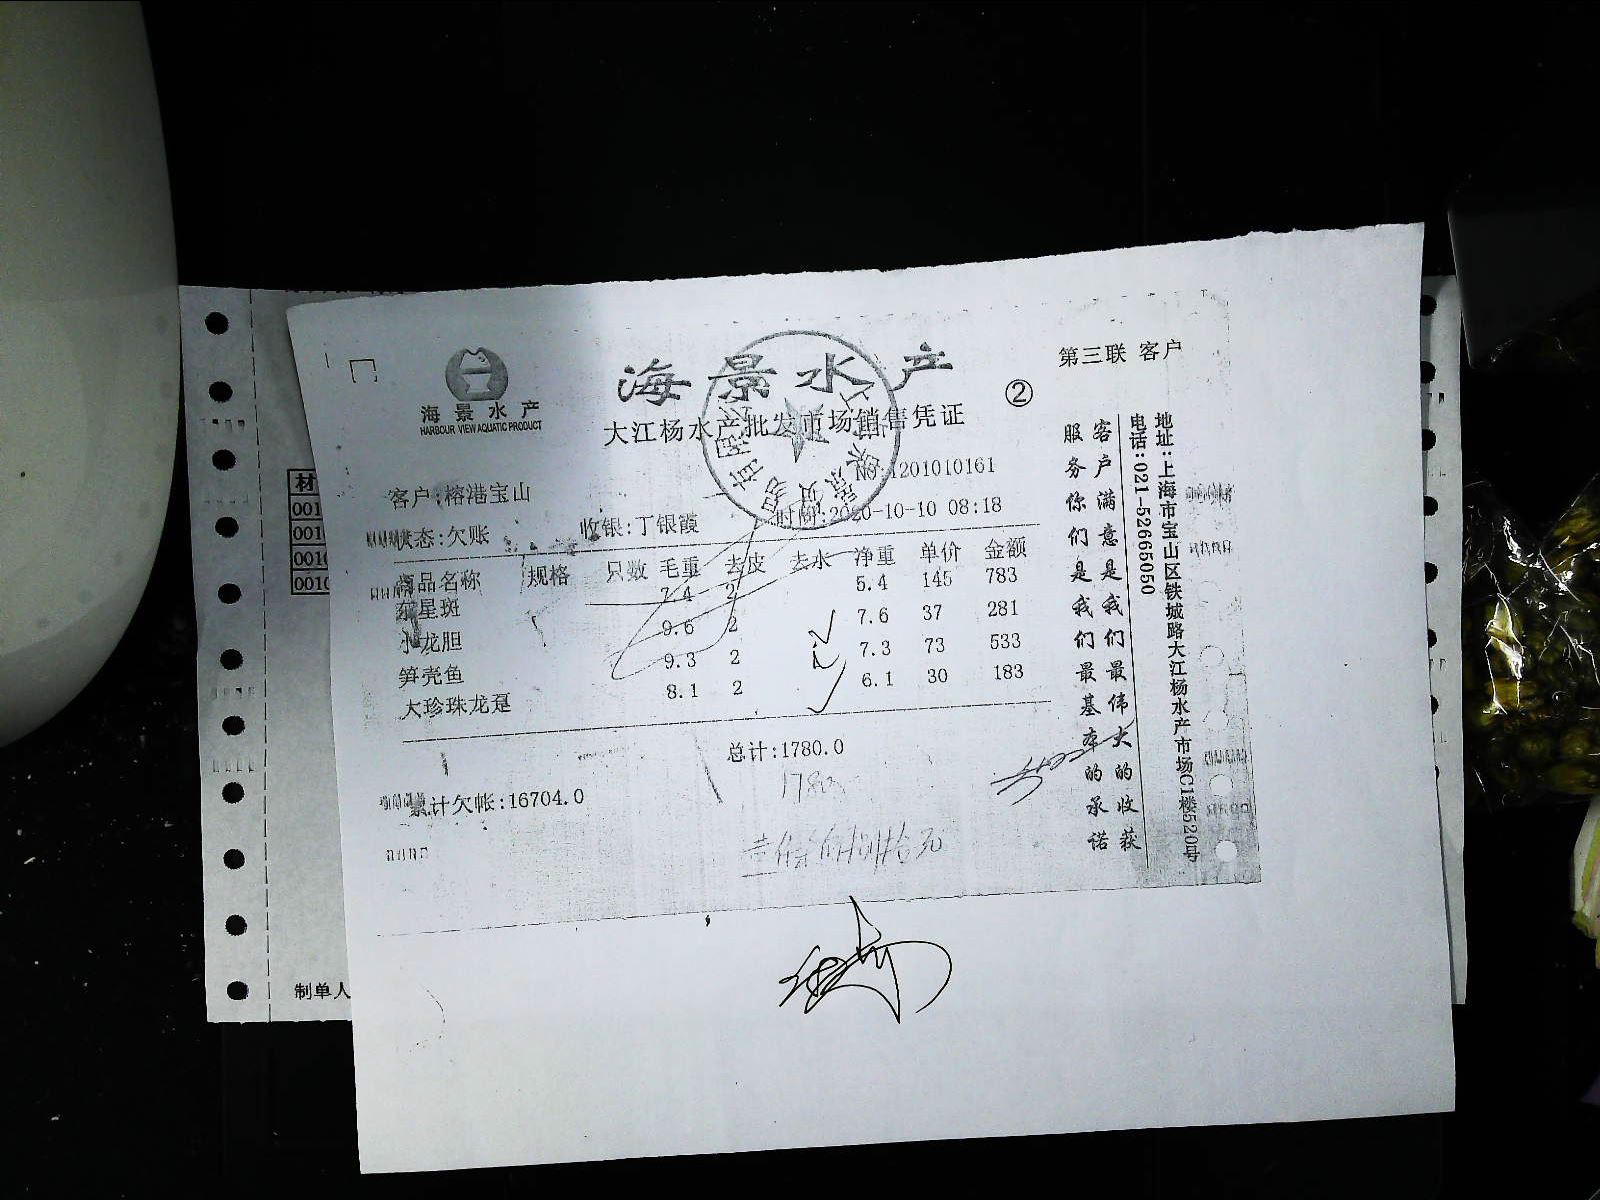 海景水产
HARBOUR VIEW AQUATIC PRODUCT
海景水产
大江杨水产批发市场销售凭证
②
第三联 客户
客户:榕港宝山
№:1201010161
状态:欠账 收银:丁银霞 时间:2020-10-10 08:18
商品名称 规格 只数 毛重 去皮 去水 净重 单价 金额
东星斑 7.4 2 5.4 145 783
小龙胆 9.6 2 7.6 37 281
笋壳鱼 9.3 2 7.3 73 533
大珍珠龙趸 8.1 2 6.1 30 183
总计:1780.0
累计欠帐:16704.0
客户满意是我们最伟大的收获
服务你们是我们最基本的承诺
地址:上海市宝山区铁城路大江杨水产市场C1楼520号
电话:021-52665050
材
001
001
0010
0010
制单人